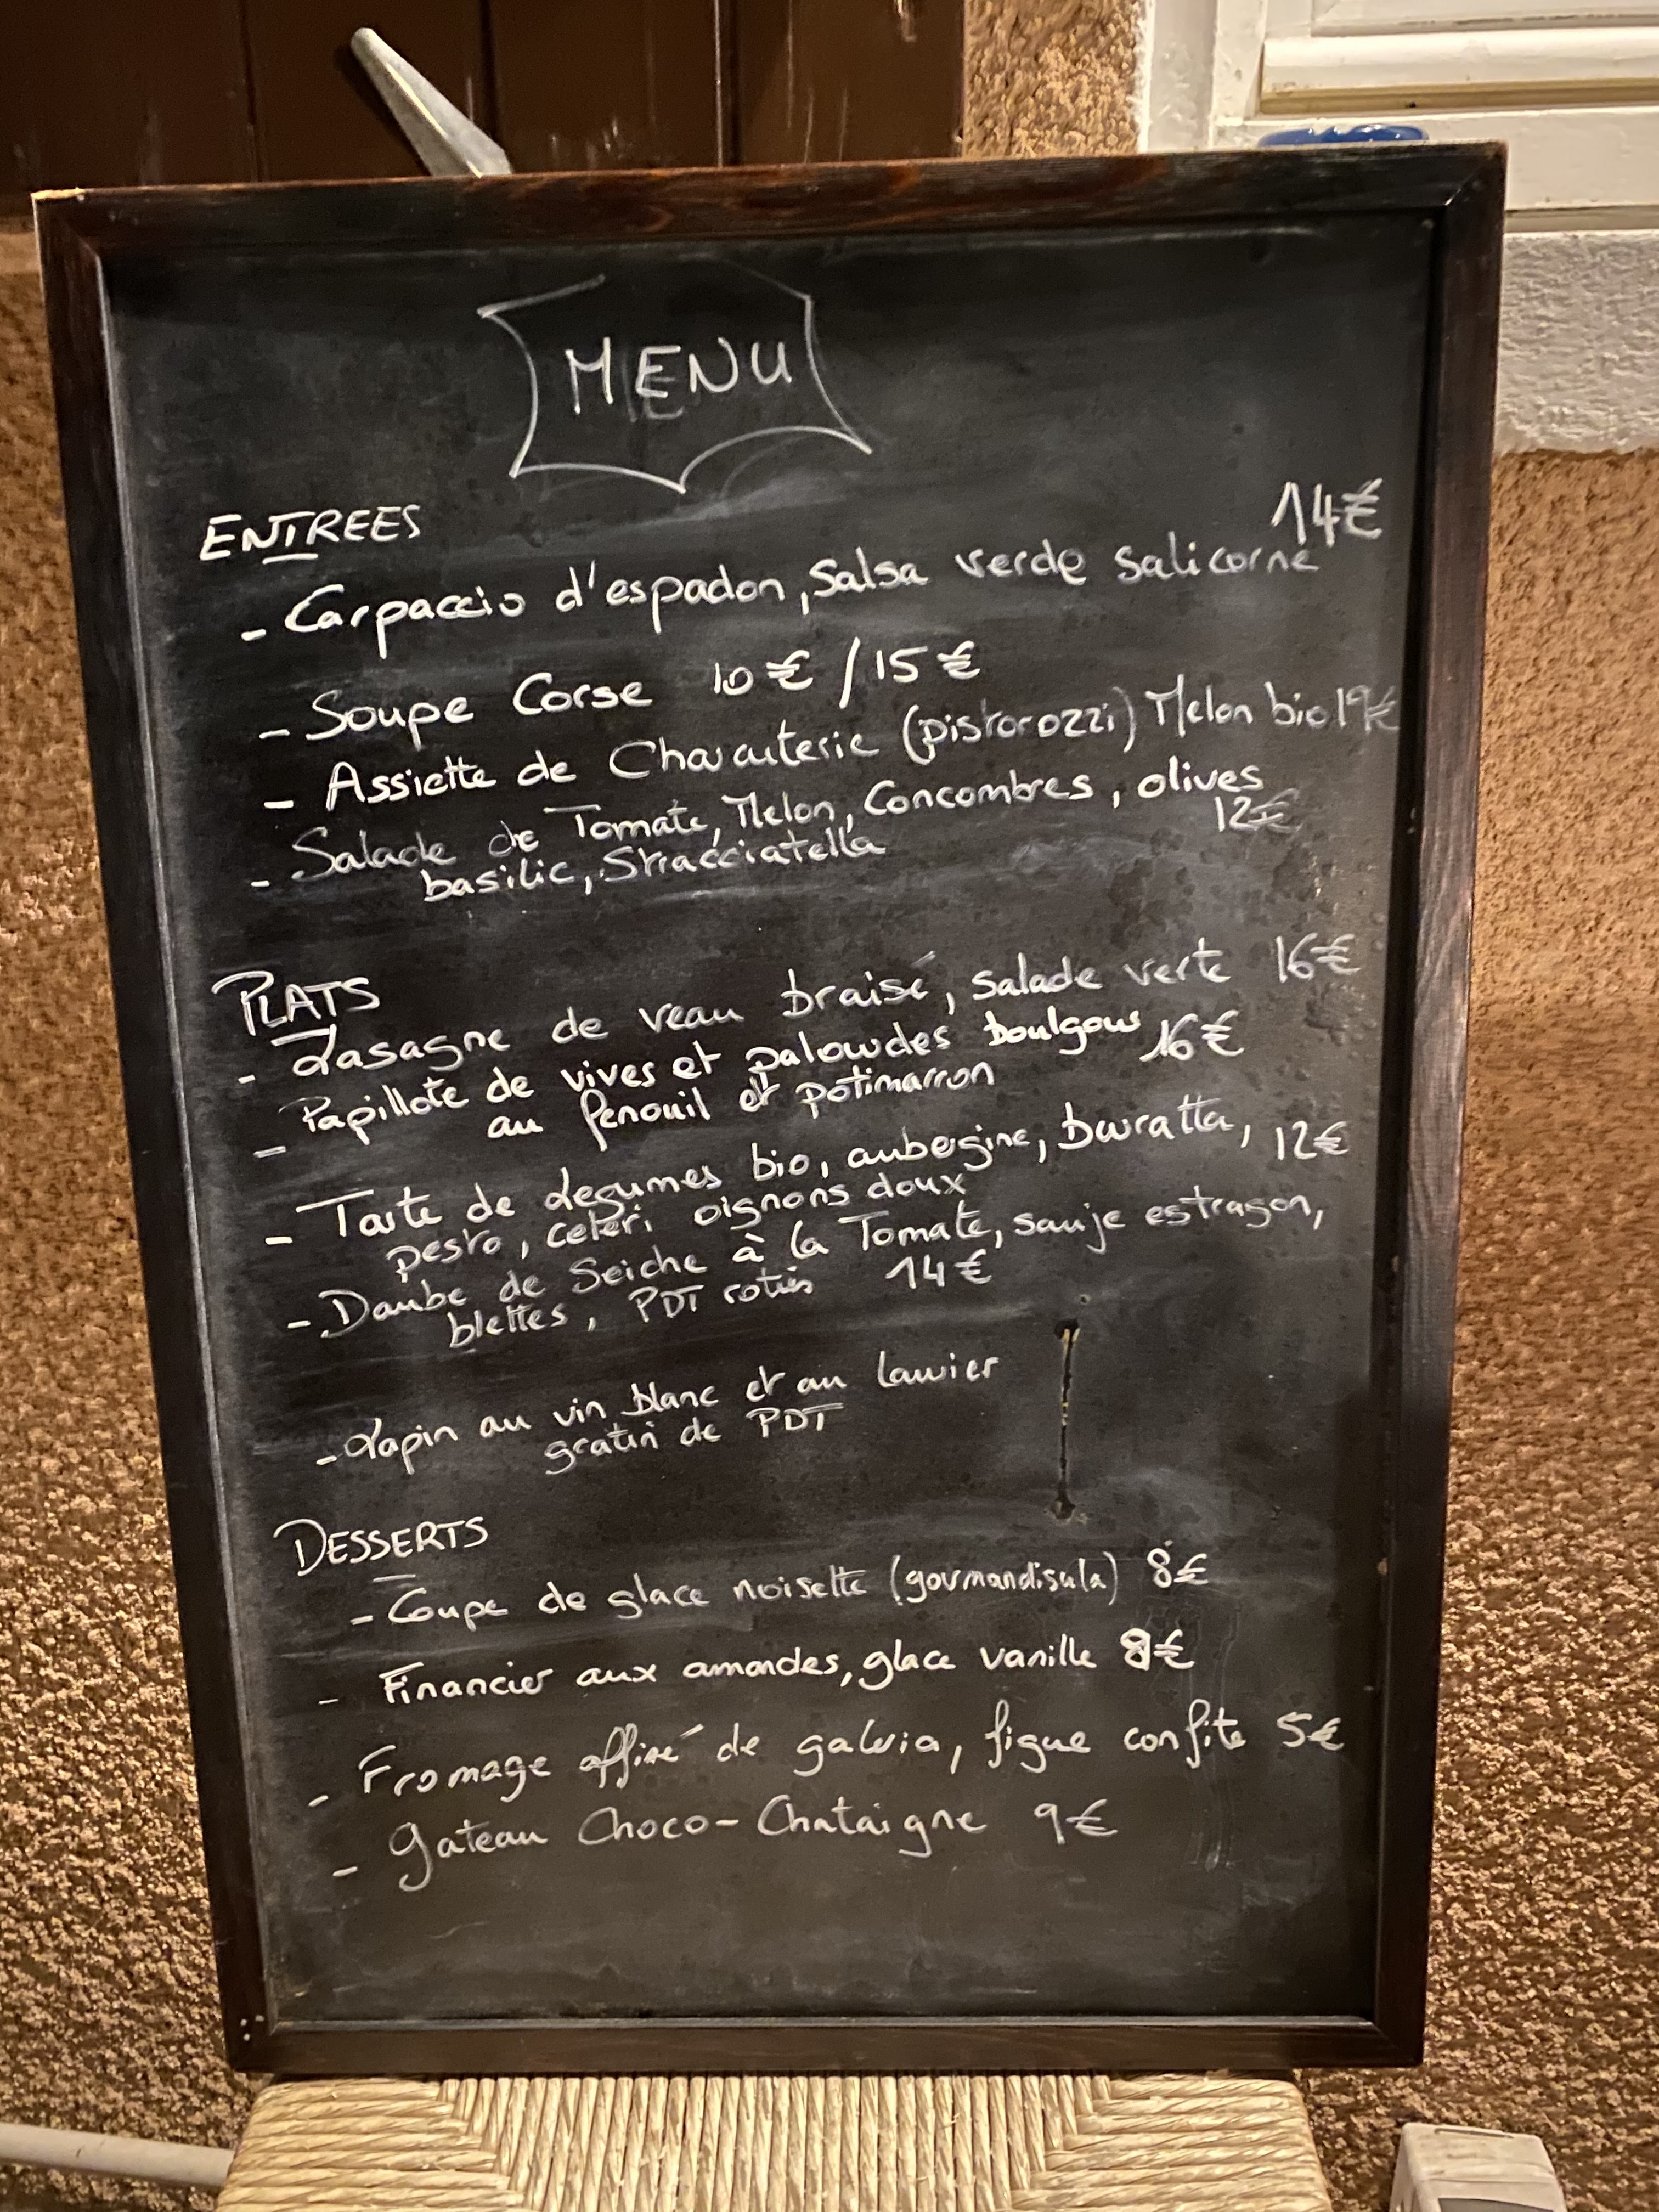 MENU
ENTREES
14€
- Carpaccio d'espadon, Salsa verde salicorne
- Soupe Corse 10€ / 15€
- Assiette de Charcuterie (pistorozzi) Melon bio 19€
- Salade de Tomate, Melon, Concombres, olives
basilic, Stracciatella 12€
PLATS
- Lasagne de veau braisé, salade verte 16€
- Papillote de vives et palourdes boulgour 16€
au fenouil et potimarron
- Tarte de légumes bio, aubergine, burratta, 12€
pesto, celeri oignons doux
- Daube de Seiche à la Tomate, sauje estragon,
blettes, PDT roties 14€
- Lapin au vin blanc et au laurier
gratin de PDT
DESSERTS
- Coupe de glace noisette (gourmandisula) 8€
- Financier aux amandes, glace vanille 8€
- Fromage affiné de galeria, figue confite 5€
- gateau Choco-Chataigne 9€